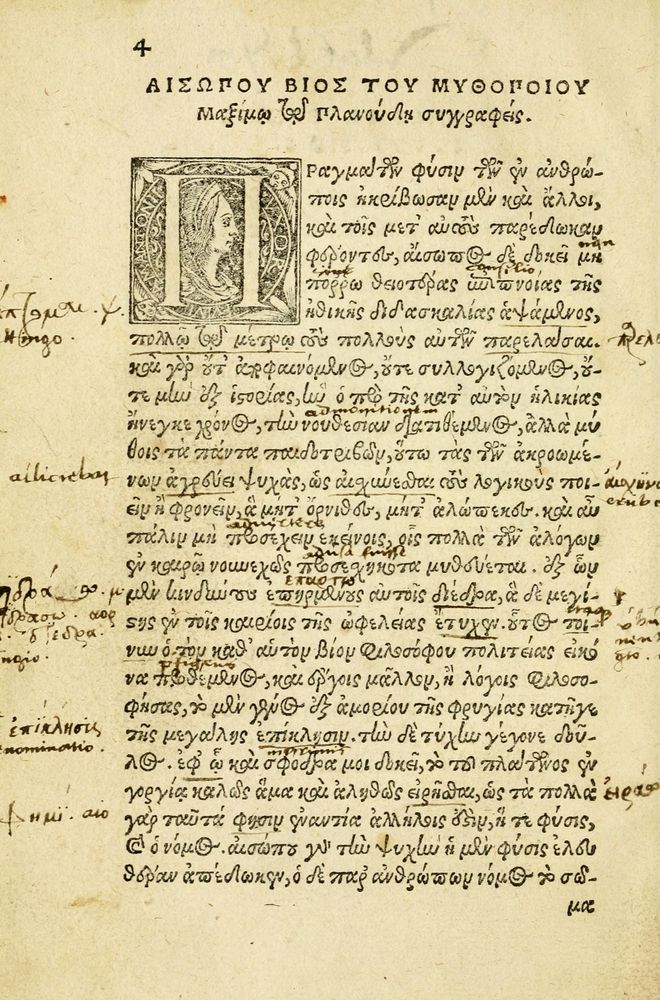 4
ΑΙΣΩΠΟΥ ΒΙΟΣ ΤΟΥ ΜΥΘΟΠΟΙΟΥ
Μαξίμῳ τῷ Πλανούδῃ συγγραφείς.
ΠΡαγμάτων φύσιν τῶν ἐν ἀνθρώ-
ποις ἠκρίβωσαν μὲν καὶ ἄλλοι,
καὶ τοῖς μετ' αὐτοὺς παρέδωκαν
φέροντες, αἴσωπος δὲ δοκεῖ μὴ
πόρρω θειοτέρας ἐπιπνοίας τῆς
ἠθικῆς διδασκαλίας ἁψάμενος,
πολλῷ τῷ μέτρῳ τοὺς πολλοὺς αὐτῶν παρελάσαι.
καὶ γὰρ οὔτ' ἀποφαινόμενος, οὔτε συλλογιζόμενος, οὔ-
τε μὴν ἐξ ἱστορίας, ἣν ὁ πρὸ τῆς κατ' αὐτὸν ἡλικίας
ἤνεγκε χρόνος, τὴν νουθεσίαν διατιθέμενος, ἀλλὰ μύ
θοις τὰ πάντα παιδοτριβῶν, οὕτω τὰς τῶν ἀκροωμέ-
νων ἀγρεύει ψυχὰς, ὡς αἰσχύνεσθαι τοὺς λογικοὺς ποι-
εῖν ἢ φρονεῖν, ἃ μήτ' ὄρνιθες, μήτ' ἀλώπεκες. καὶ αὖ
πάλιν μὴ προσέχειν ἐκείνοις, οἷς πολλὰ τῶν ἀλόγων
ἐν καιρῷ νουνεχῶς προσεσχηκότα μυθεύεται. ἐξ ὧν
μὲν κινδύνους ἐπηρμένους αὐτοῖς διέδρα, ἃ δὲ μεγί-
στης ἐν τοῖς καιρίοις τῆς ὠφελείας ἔτυχεν. οὗτος τοί-
νυν ὁ τὸν καθ' αὑτὸν βίον φιλοσόφου πολιτείας εἰκό
να προθέμενος, καὶ ἔργοις μᾶλλον, ἢ λόγοις φιλοσο-
φήσας, τὸ μὲν γένος ἐξ ἀμορίου τῆς φρυγίας κατῆγε
τῆς μεγάλης ἐπίκλησιν. τὴν δὲ τύχην γέγονε δοῦ-
λος. ἐφ' ᾧ καὶ σφόδρα μοι δοκεῖ, τὸ τοῦ πλάτωνος ἐν
γοργίᾳ καλῶς ἅμα καὶ ἀληθῶς εἰρῆσθαι, ὡς τὰ πολλὰ
γὰρ ταῦτά φησιν ἐναντία ἀλλήλοις ἐστὶν, ἥ τε φύσις,
καὶ ὁ νόμος. αἰσώπου γὰρ τὴν ψυχὴν ἡ μὲν φύσις ἐλευ
θέραν ἀπέδωκεν, ὁ δὲ παρ' ἀνθρώπων νόμος τὸ σῶ-
μα
alliciebat
ἐπίκλησις
nominatio.
φημί. αἰο